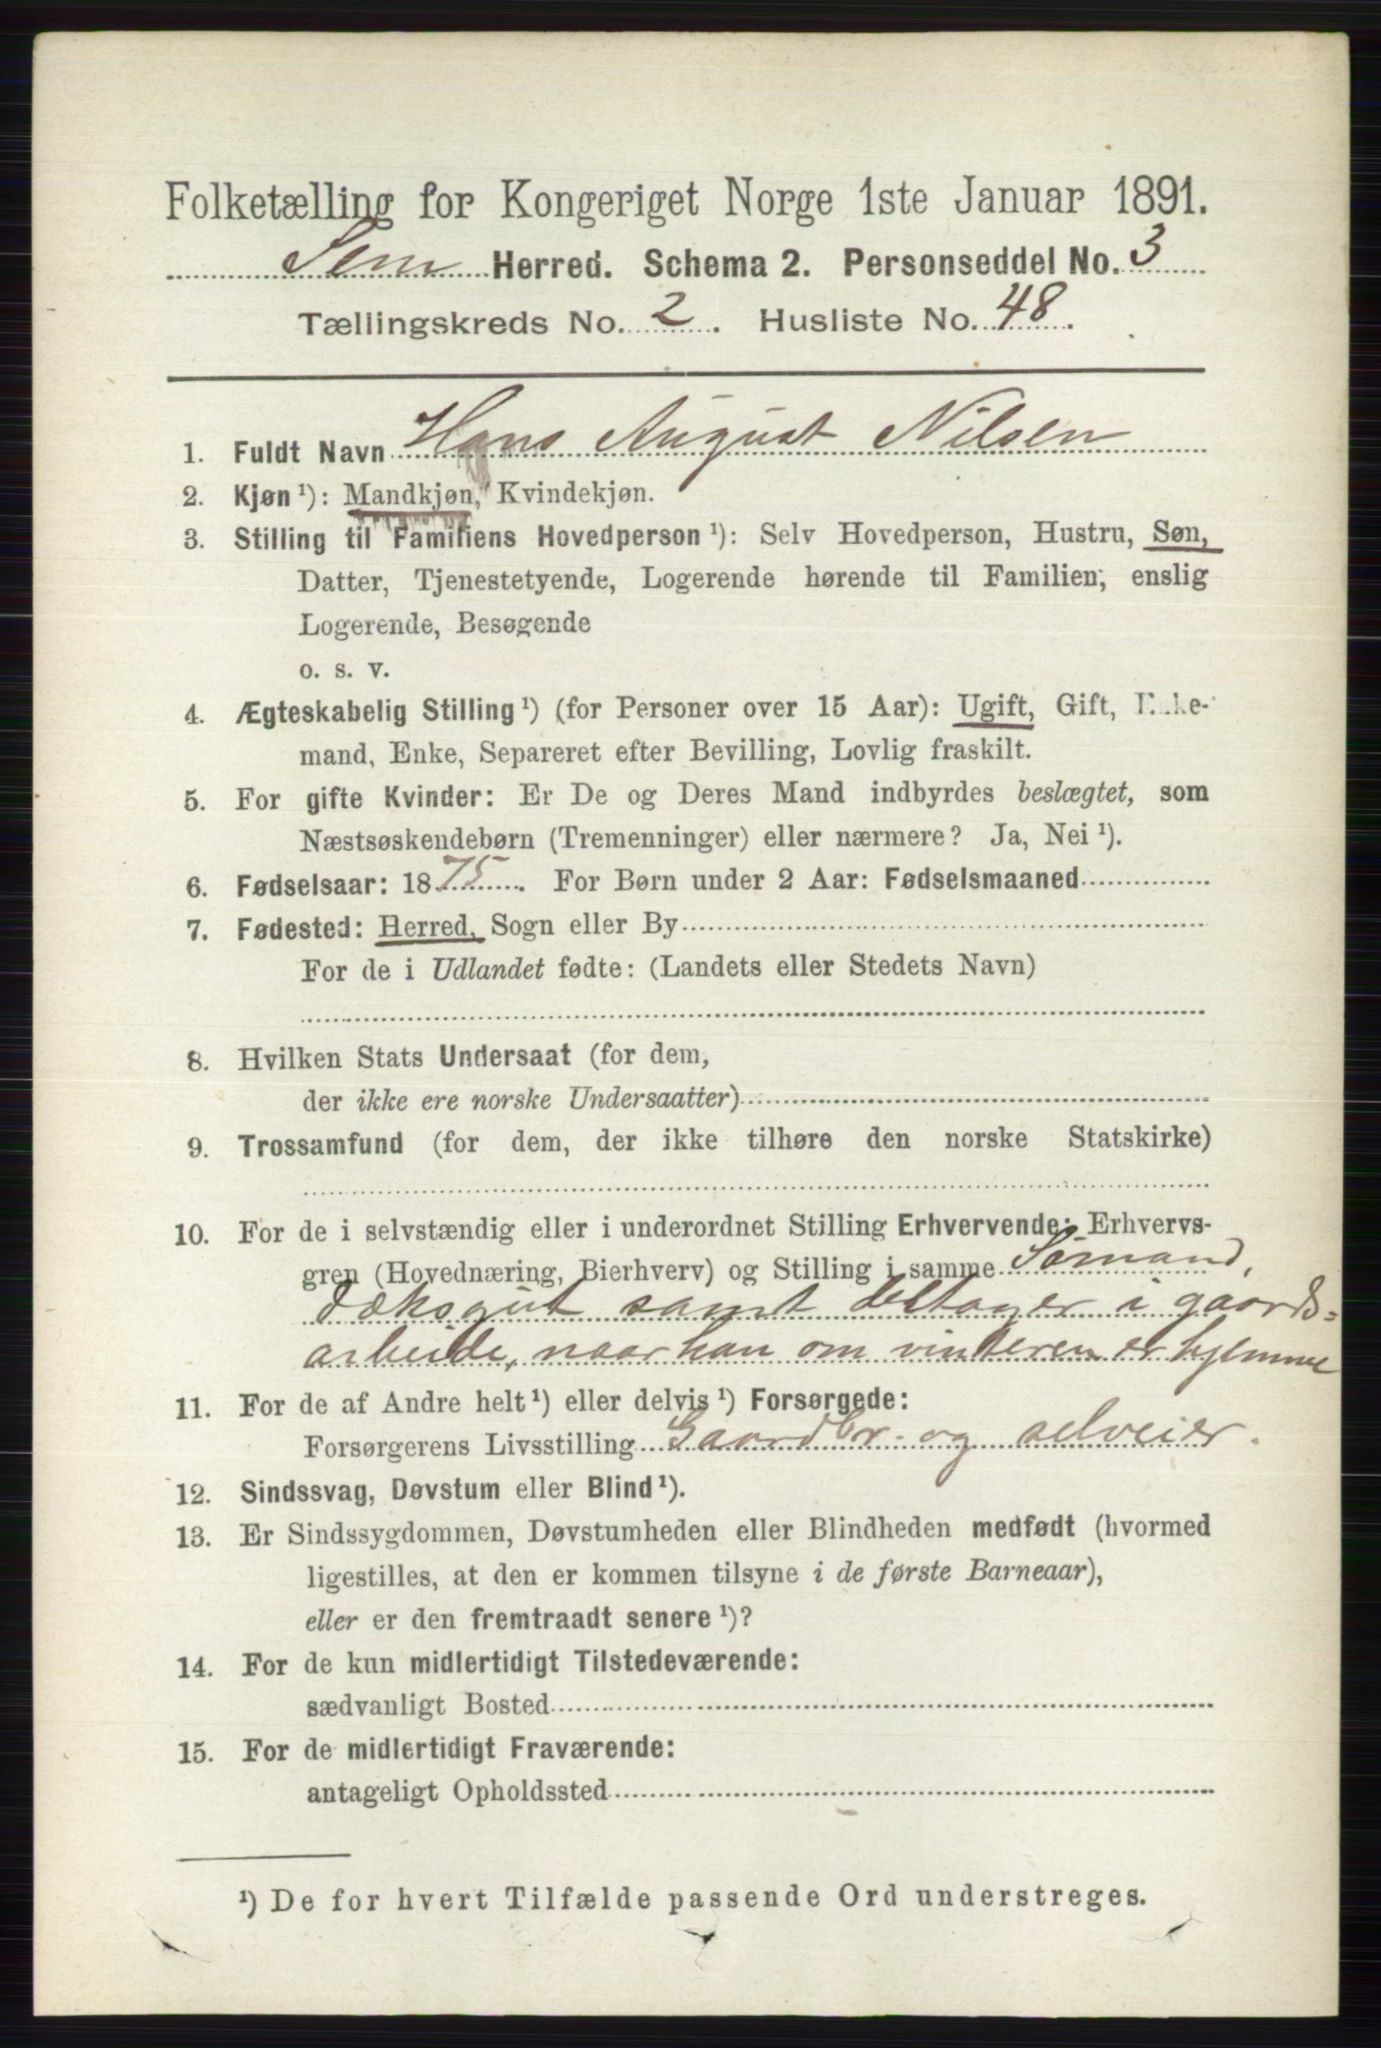 Folketælling for Kongeriget Norge 1ste Januar 1891.
Sem Herred. Schema 2. Personseddel No. 3
Tællingskreds No. 2. Husliste No. 48.
1. Fuldt Navn Hans August Nilsen
2. Kjøn ¹): Mandkjøn, Kvindekjøn.
3. Stilling til Familiens Hovedperson ¹): Selv Hovedperson, Hustru, Søn,
Datter, Tjenestetyende, Logerende hørende til Familien, enslig
Logerende, Besøgende
o. s. v.
4. Ægteskabelig Stilling ¹) (for Personer over 15 Aar): Ugift, Gift, Enke-
mand, Enke, Separeret efter Bevilling, Lovlig fraskilt.
5. For gifte Kvinder: Er De og Deres Mand indbyrdes beslægtet, som
Næstsøskendebørn (Tremenninger) eller nærmere? Ja, Nei ¹).
6. Fødselsaar: 1875. For Børn under 2 Aar: Fødselsmaaned
7. Fødested: Herred, Sogn eller By
For de i Udlandet fødte: (Landets eller Stedets Navn)
8. Hvilken Stats Undersaat (for dem,
der ikke ere norske Undersaatter)
9. Trossamfund (for dem, der ikke tilhøre den norske Statskirke)
10. For de i selvstændig eller i underordnet Stilling Erhvervende: Erhvervs-
gren (Hovednæring, Bierhverv) og Stilling i samme Sømand,
dæksgut samt deltager i gaards-
arbeide, naar han om vinteren er hjemme
11. For de af Andre helt ¹) eller delvis ¹) Forsørgede:
Forsørgerens Livsstilling Gaardbr. og selveier.
12. Sindssvag, Døvstum eller Blind ¹).
13. Er Sindssygdommen, Døvstumheden eller Blindheden medfødt (hvormed
ligestilles, at den er kommen tilsyne i de første Barneaar),
eller er den fremtraadt senere ¹)?
14. For de kun midlertidigt Tilstedeværende:
sædvanligt Bosted
15. For de midlertidigt Fraværende:
antageligt Opholdssted
¹) De for hvert Tilfælde passende Ord understreges.